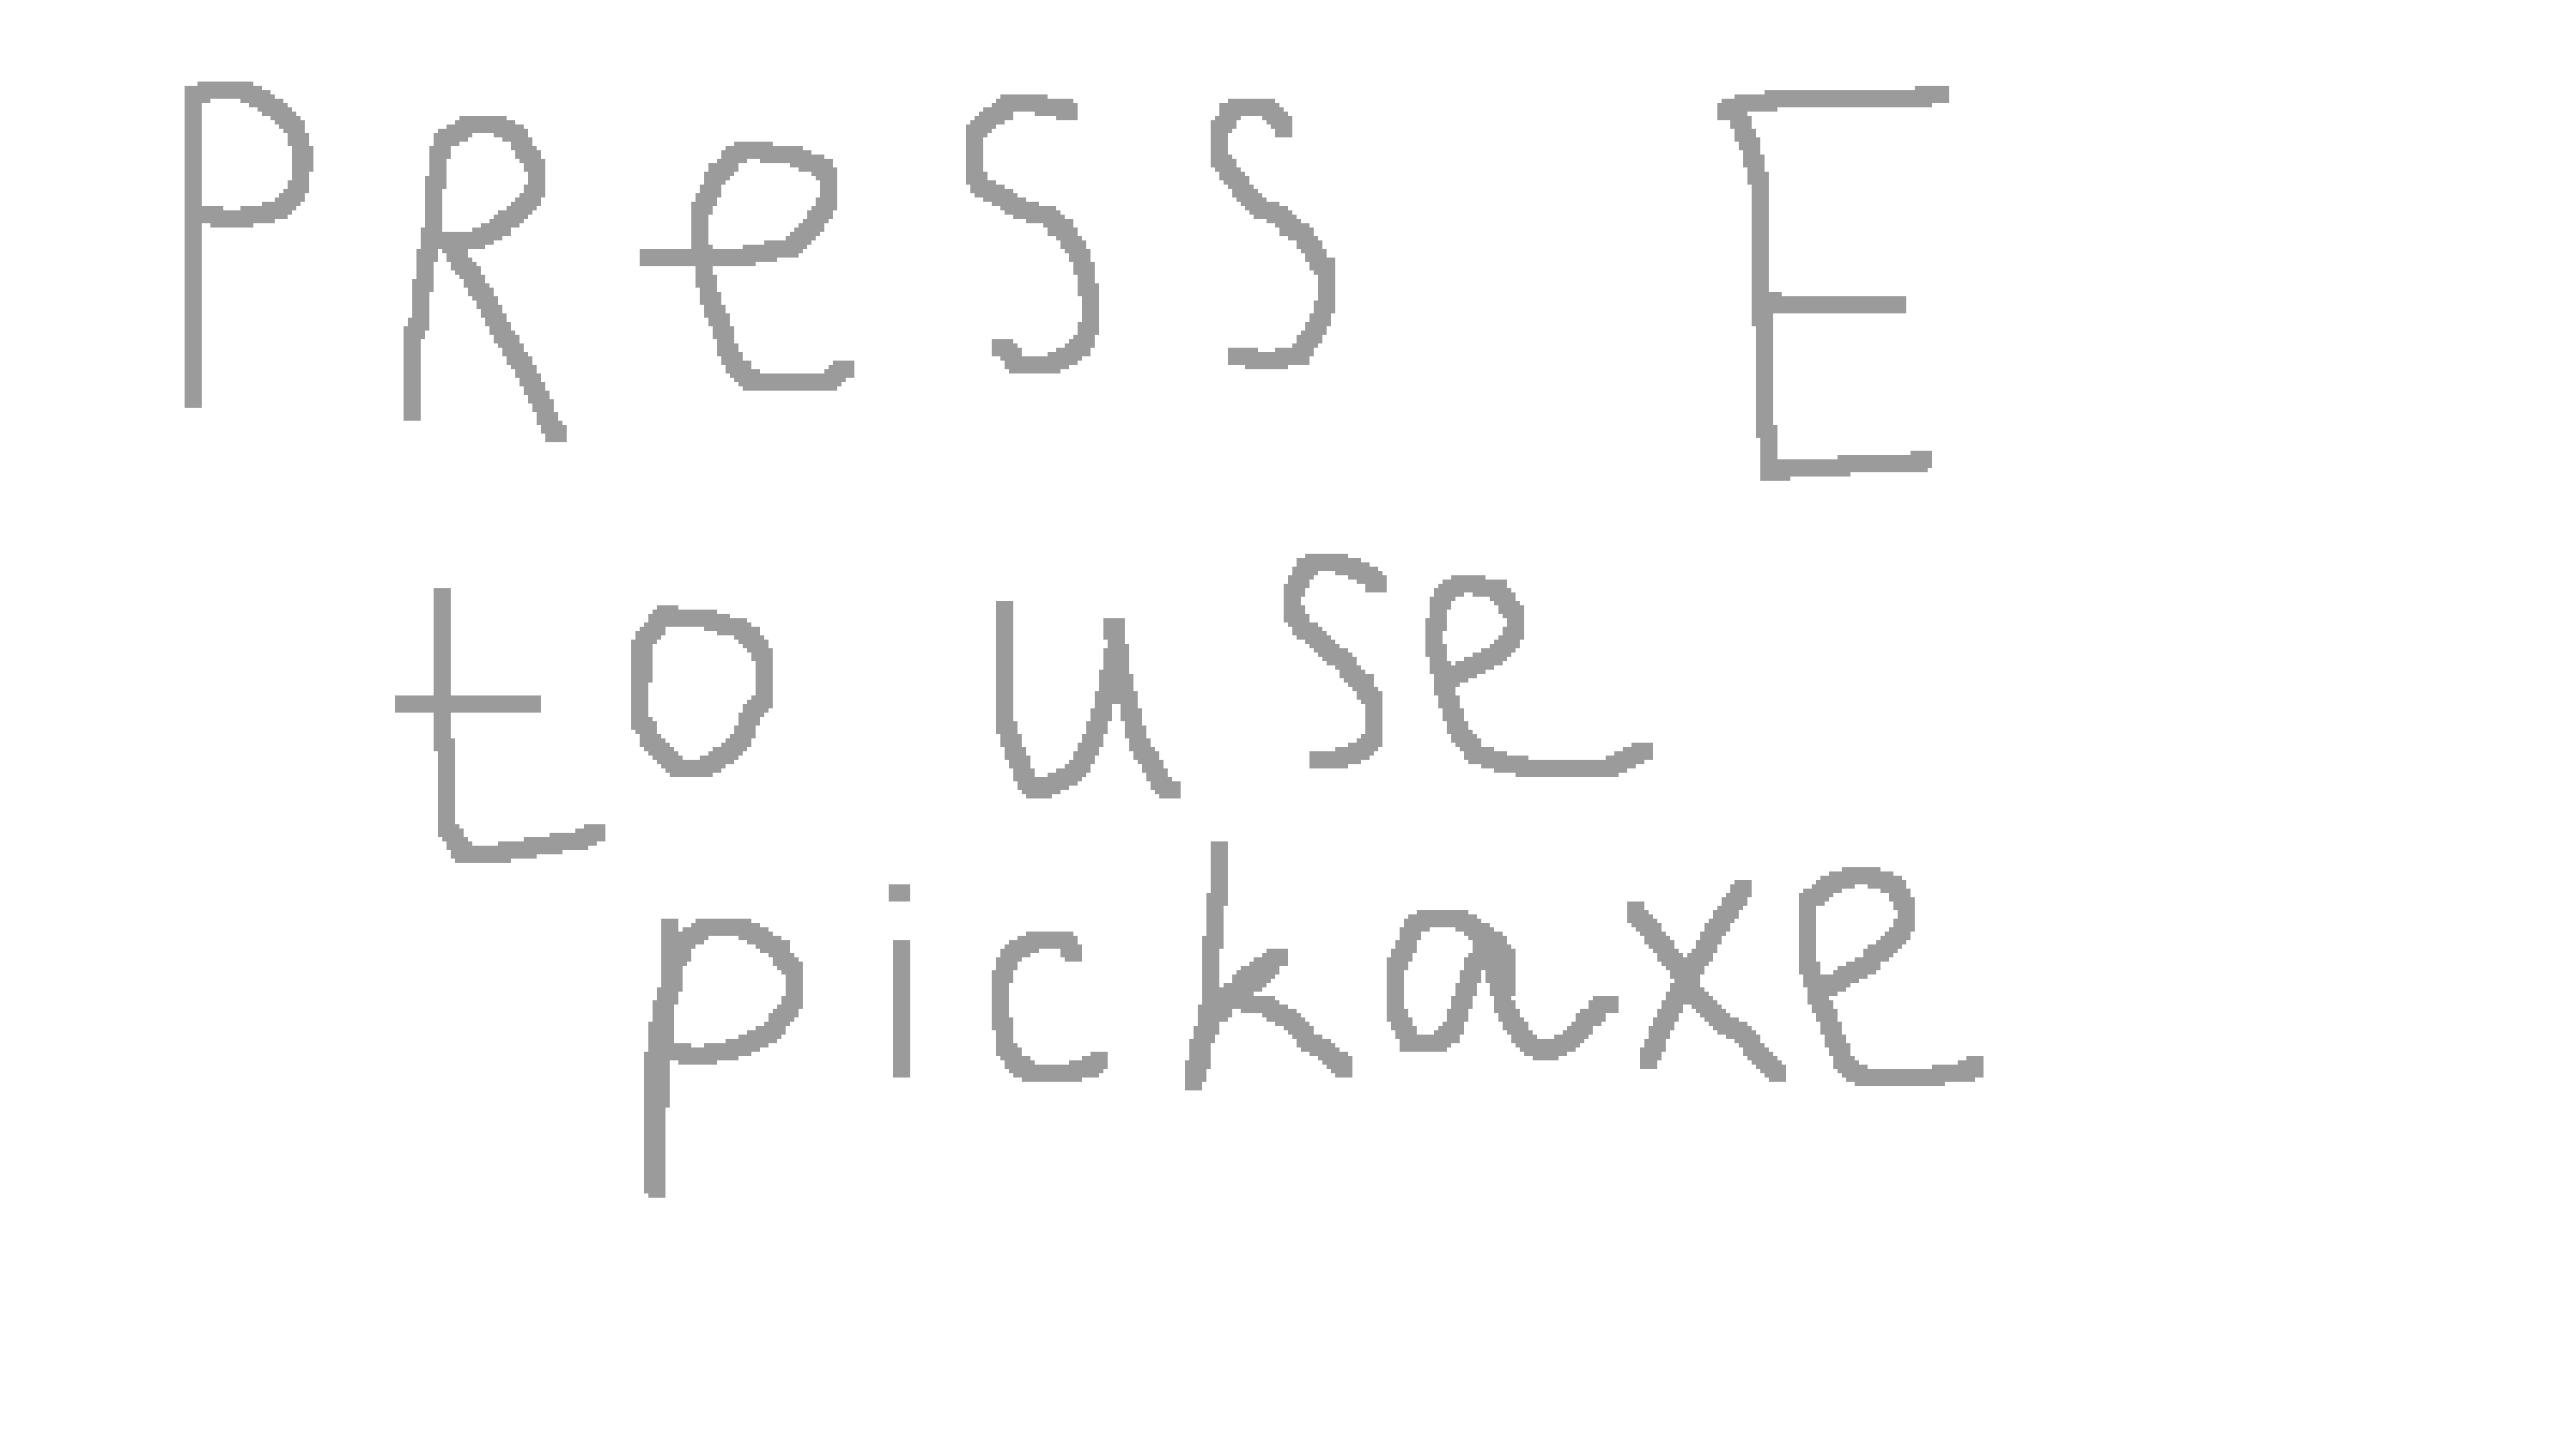 PReSS E
to use
pickaxe